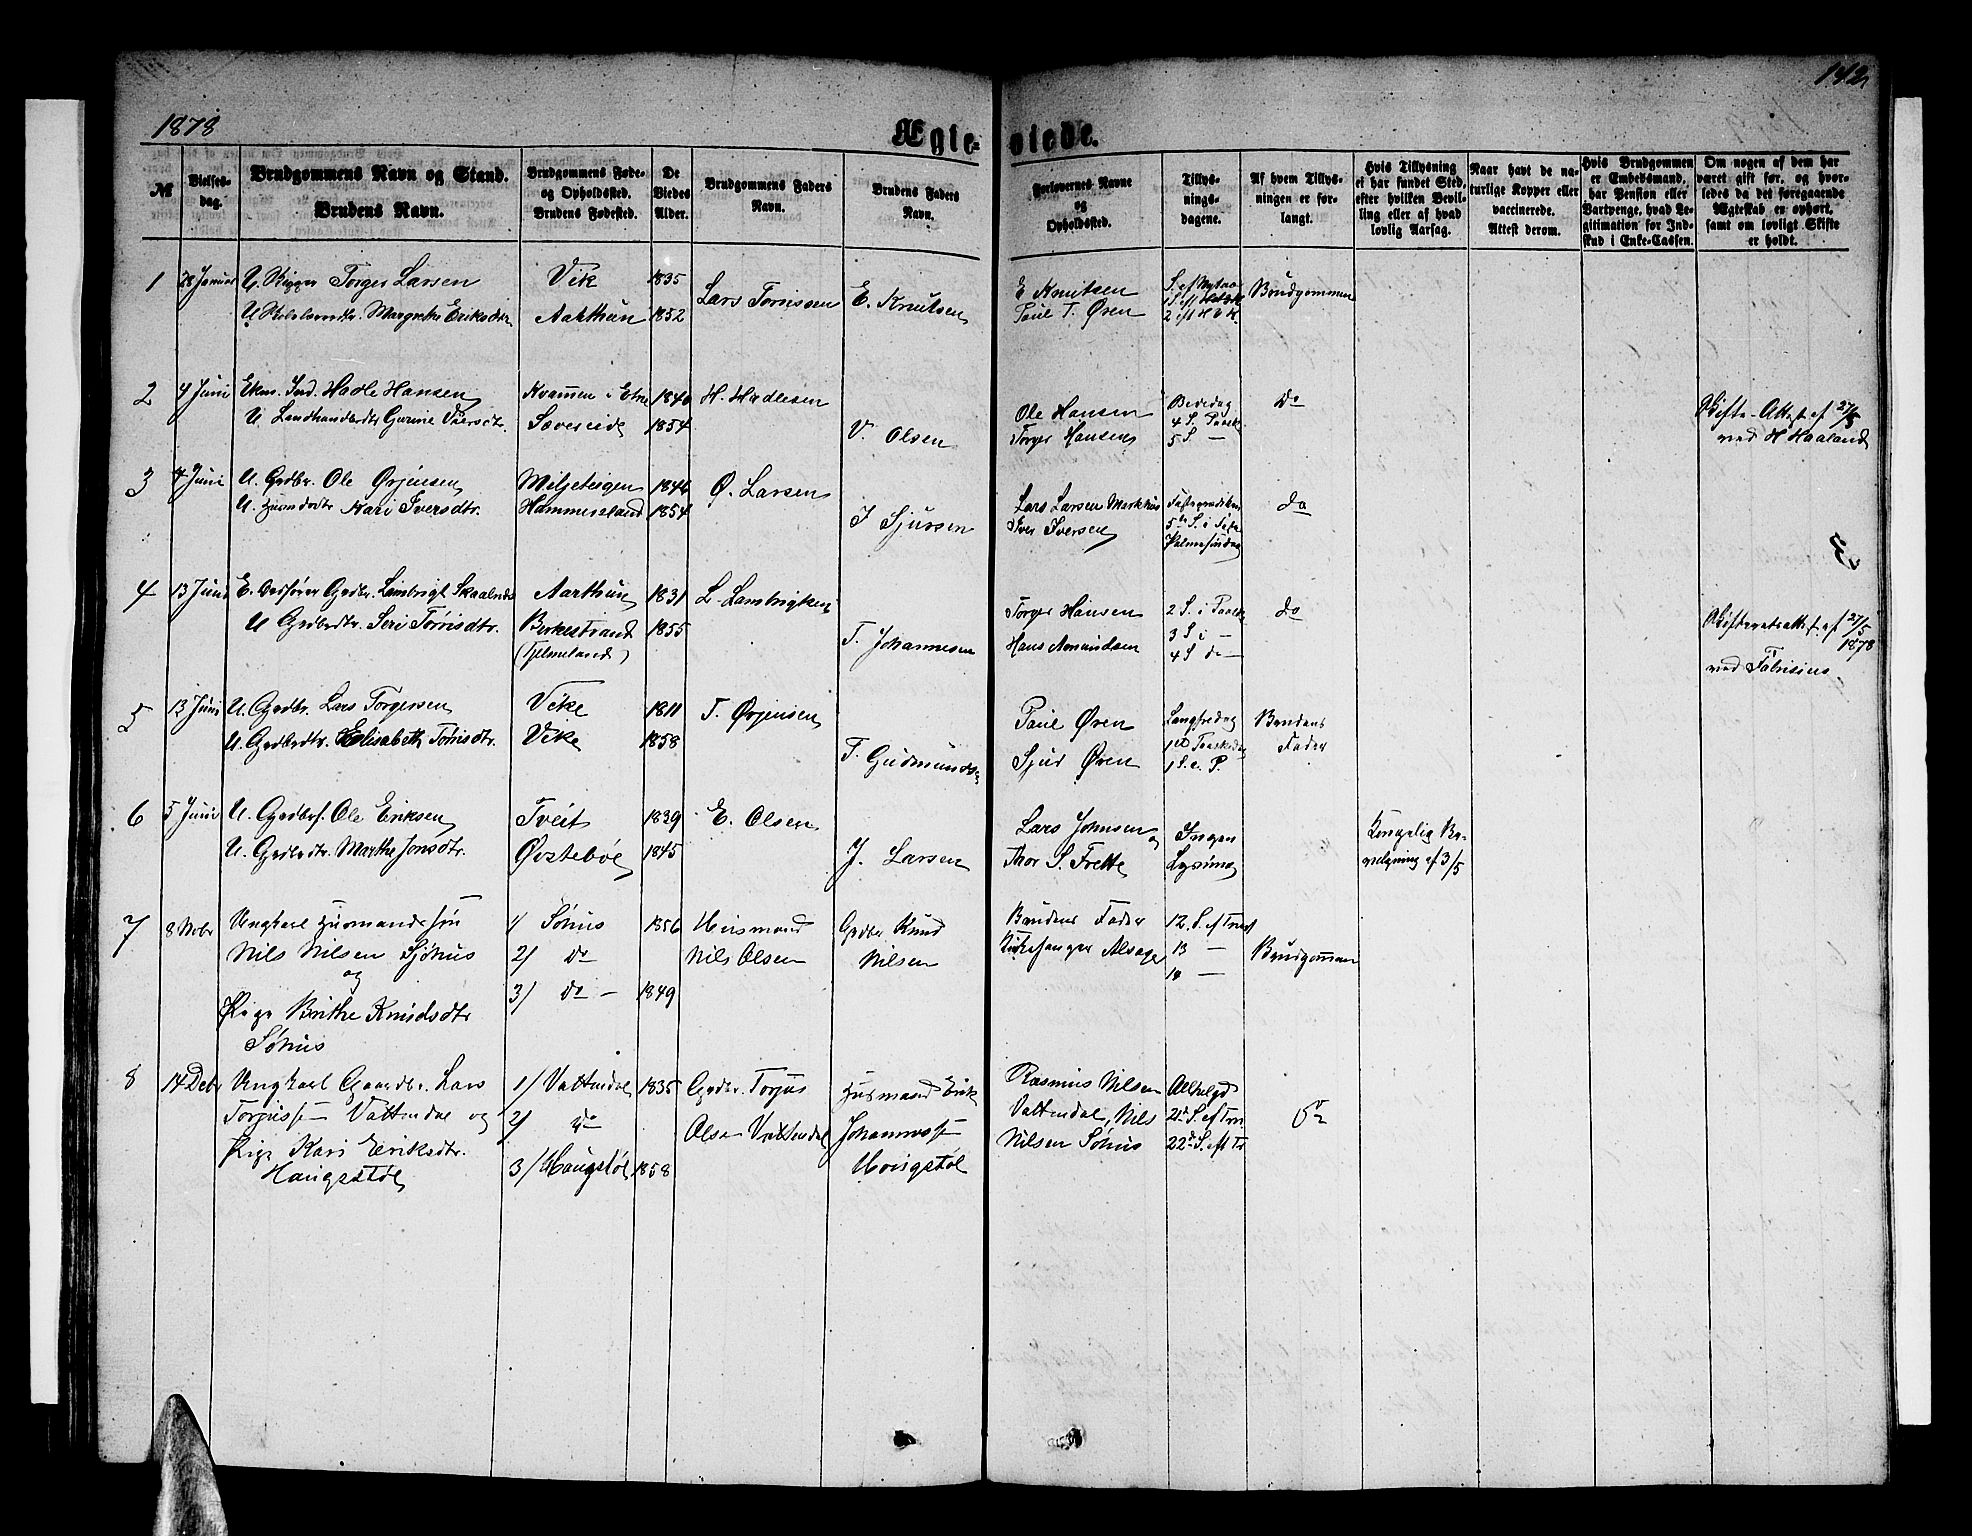 1878
142
Ægte-
viede.
№
Vielses-
dag.
Brudgommens Navn og Stand.
Brudens Navn.
Brudgommens Føde-
og Opholdssted.
Brudens Fødested.
De
Viedes
Alder.
Brudgommens Faders
Navn.
Brudens Faders
Navn.
Forlovernes Navne
og
Opholdssted.
Tillys-
nings-
dagene.
Af hvem Tillys-
ningen er for-
langt.
Hvis Tillysning
ei har fundet Sted,
efter hvilken Bevil-
ling eller af hvad
lovlig Aarsag.
Naar havt de na-
turlige Kopper eller
vaccinerede.
Attest derom.
Hvis Brudgommen
er Embedsmand,
har Pension eller
Vartpenge, hvad Le-
gitimation for Ind-
skud i Enke-Cassen.
Om nogen af dem har
været gift før, og hvor-
ledes da det foregaaende
Ægteskab er ophørt,
samt om lovligt Skifte
er holdt.
1
28 Januar
Torger Larsen
U. Margrethe Eriksdtr
Vik
Aakthun
1835
1852
Lars Torrissen
E. Knutsen
E Knutsen
Paul T. Øren
Brudgommen
2
4 Juni
Ekm. Ind. Hadle Hansen
U. Landhandlerdtr Gurine Viersdtr.
Kvammen i Etne
Sævereide
1840
1854
H. Hadlesen
V. Olsen
Ole Hansen
Torger Hansen
Bededag
4 S. Paask
5 S —
Do
Skifte-Attest af 27/5
ved H Haaland
3
4 Juni
U. Grdbr. Ole Ørjensen
U. Husmdsdtr Kari Iversdtr.
Miljeteigen
Hammersland
1846
1854
Ø. Larsen
I Sjursen
Lars Larsen Markhus
Iver Iversen
5te S. i Faste
Palmesøndag
do
4
13 Juni
E. Grdbr. Lambrigt Skaalnes
U Grdbrdtr. Seri Tørrisdtr.
Aarthun
Birkestrand
(Fjelmeland)
1831
1855
L. Lambrigtsen
T. Johannesen
Torger Hansen
Hans Amundsen
2 S. i Paask
3 S i —
4 S do —
do
Skifterets attest af 27/5
1878
ved Fabrisius
5
13 Juni
U. Grdbr. Lars Torgersen
U. Grdbrdtr. Elisabeth Tørrisdtr.
Vike
Vike
1811
1858
T. Ørjensen
T. Gudmunds-
Paul Øren
Sjur Øren
Langfredag
1st Paaskedag
1 S. e. P.
Brudens
Fader
6
5 Juni
U. Grdbrs. Ole Eriksen
U. Grdbrdtr. Marthe Jonsdtr.
Tveit
Østebøe
1839
1845
E. Olsen
J. Larsen
Lars Johnsen og
Thor S. Frette
Ingen
Lysning
Kongelig Be-
vilgning af 3/5
7
8 Nobr
Ungkarl Husmandssøn
Nils Nilsen Sjøhus
og
Pige Brithe Knudsdtr
Søhus
1/ Søhus
2/ do
3/ do —
1856
1849
Husmand
Nils Olsen
Grdbr Knud
Nilsen
Brudens Fader
Kirkesanger Alsager
12. S. ef Trest
13 —
18 —
Brudgommen
8
14 Debr
Ungkarl Gaardbr. Lars
Torjussen Vattendal og
Pige Kari Eriksdtr.
Haugstøl
1/ Vattendal
2/ do
3/ Haugstøl
1835
1858
Grdbr. Torjus
Olsen Vattendal
Husmand Erik
Johannessen
Haugstøl
Rasmus Nilsen
Vattendal, Nils
Nilsen Søhus
Allhelgd
21de S. ef Trin
22de S. eft Tr
do